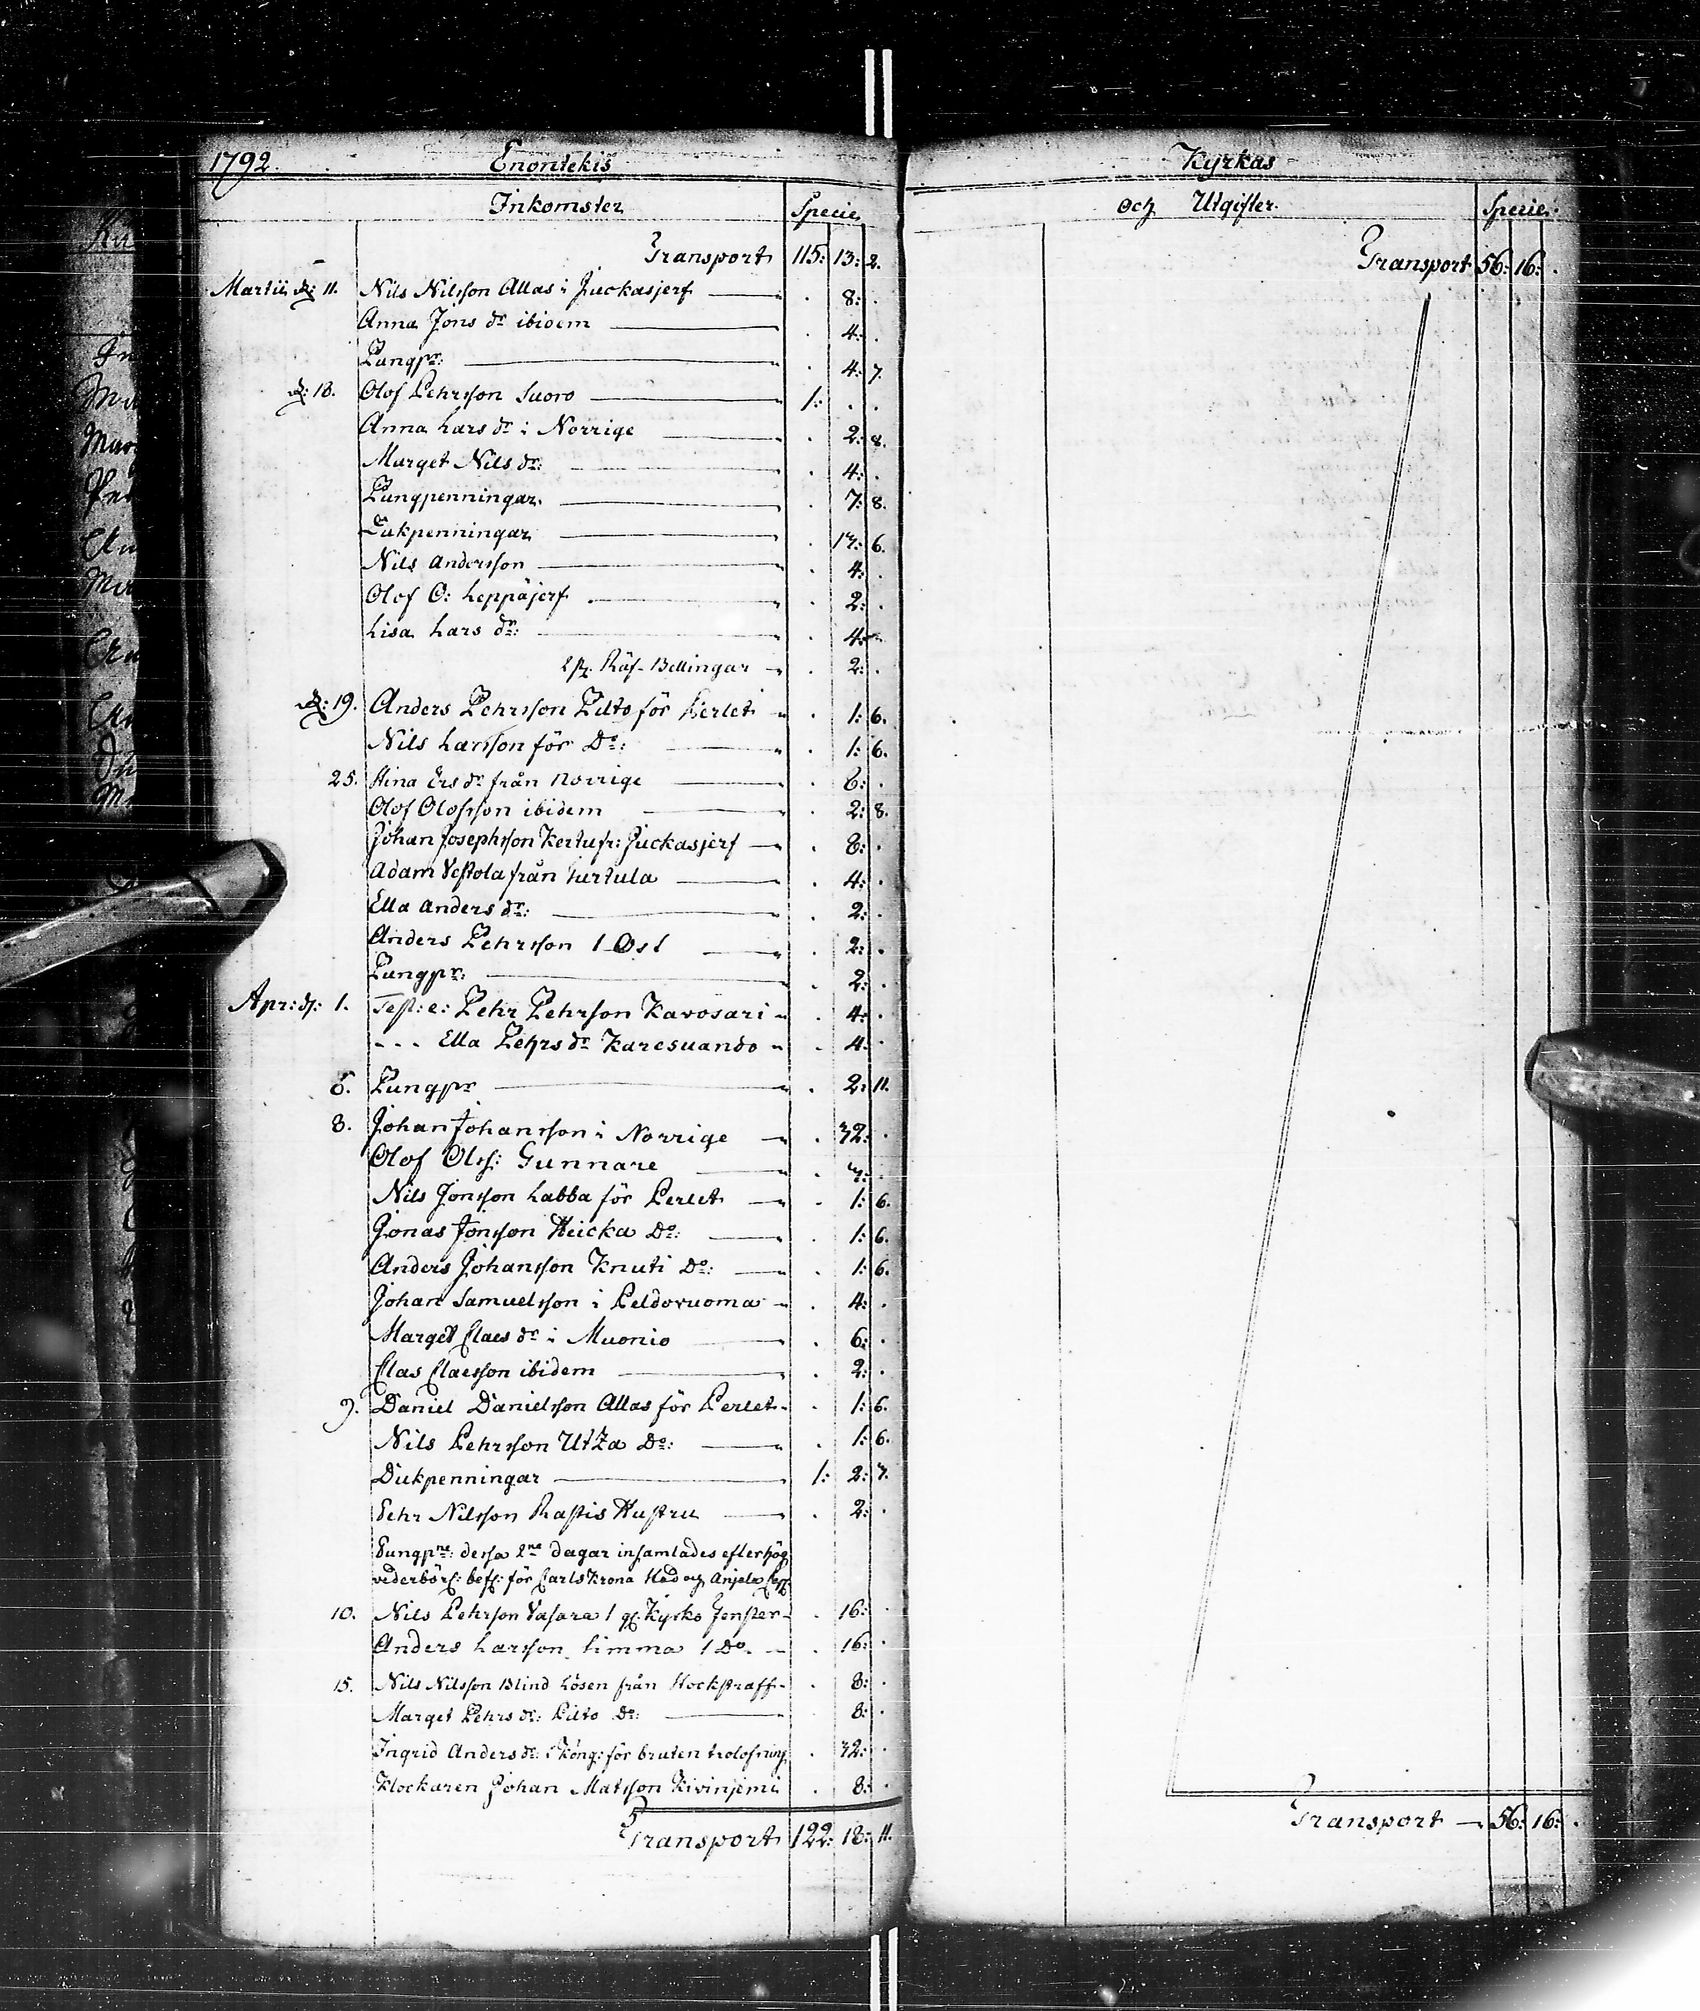 1792. Enontekis
Inkomster Specie
Transport 115: 13: 2.
Martii d: 11. Nils Nilsson Allas i Juckasjerf . 8: .
Anna Jons dr ibidem . 4: .
Pungpr: . 4: 7.
d: 18. Olof Pehrsson Suoro 1: . .
Anna Lars dr i Norrige . 2: 8.
Marget Nils dr: . 4: .
Pungpenningar . 7: 8.
Dukpenningar . 17: 6.
Nils Andersson . 4: .
Olof O: Leppäjerf . 2: .
Lisa Lars dr: . 4: .
Räf-Bellingar . 2: .
d: 19. Anders Pehrsson Pilto för Perlet . 1: 6.
Nils Larsson för Do: . 1: 6.
25. Stina Ers dr från Norrige . 6: .
Olof Olofsson ibidem . 2: 8.
Johan Josephsson Kertu fr: Juckasjerf . 8: .
Adam Vestola från Turtula . 4: .
Ella Anders dr: . 2: .
Anders Pehrsson 1 Ost . 2: .
Pungpr: . 2: .
Apr: d: 1. Test: e: Pehr Pehrson Kavosari . 4: .
- - - Ella Pehrs dr Karesuando . 4: .
6. Pungpr . 2: 11.
8. Johan Johansson i Norrige . 32: .
Olof Olss: Gunnare .
Nils Jonsson Labba för Perlet . 1: 6.
Jonas Jonsson Heicka Do: . 1: 6.
Anders Johansson Knuti Do: . 1: 6.
Johan Samuelsson i Peldovuoma . 4: .
Marget Claes dr i Muonio . 6: .
Clas Claesson ibidem . 2: .
9. Daniel Danielsson Allas för Perlet . 1: 6.
Nils Pehrsson Utza Do: . 1: 6.
Dukpenningar 1: 2: 7.
Pehr Nilsson Rastis Hustru . 2: .
Pungpne: dessa 2ne dagar insamlades efter hög
vederbörl: bef: för Carlskrona Stad och Anjela
10. Nils Pehrson Vasara 1 gl: Kyrko Fenster . 16: .
Anders Larsson Simma 1 Do . 16: .
15. Nils Nilsson Blind Lösen från Stockstraff . 8: .
Marget Pehrs dr: Pilto Do: . 8: .
Ingrid Anders dr: i Köng: för bruten trolofning . 32: .
Klockaren Johan Matsson Kivinjemi . 8: .
Transport 122: 18: 11.
Kyrkas
och Utgifter. Specie:
Transport 56: 16: .
Transport 56: 16: .